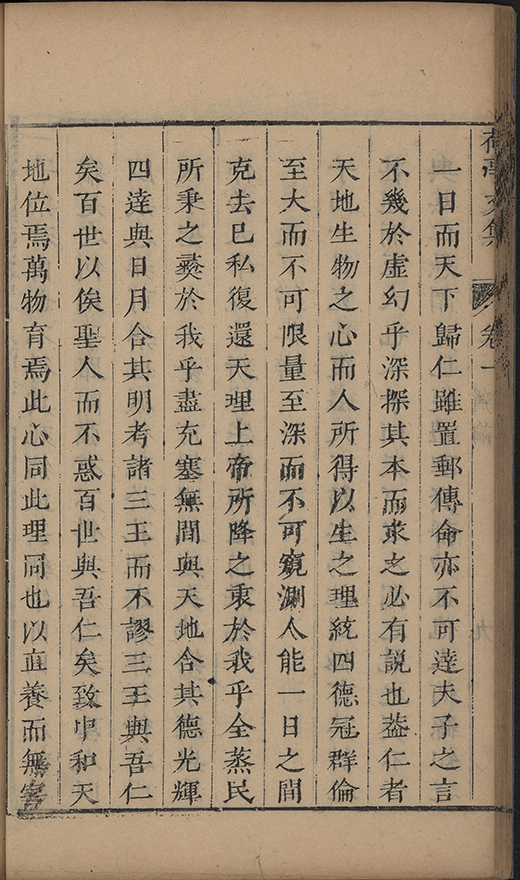 文集 卷一
一日而天下歸仁雖置郵傳命亦不可達夫子之言
不幾於虛幻乎深探其本而求之必有說也葢仁者
天地生物之心而人所得以生之理統四德冠群倫
至大而不可限量至深而不可窺測人能一日之間
克去己私復還天理上帝所降之衷於我乎全蒸民
所秉之彝於我乎盡充塞無間與天地合其德光輝
四達與日月合其明考諸三王而不謬三王與吾仁
矣百世以俟聖人而不惑百世與吾仁矣致中和天
地位焉萬物育焉此心同此理同也以直養而無害